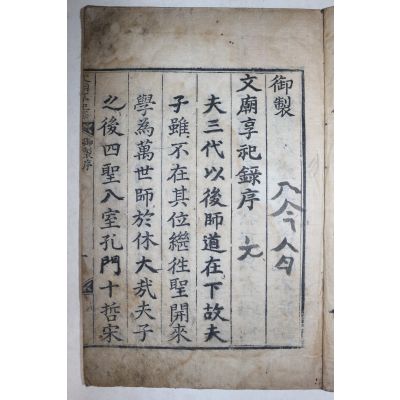 御製
文廟享祀錄序
夫三代以後師道在下故夫
子雖不在其位繼徃聖開來
學為萬世師於休大㢤夫子
之後四聖入室孔門十哲宋
御製序